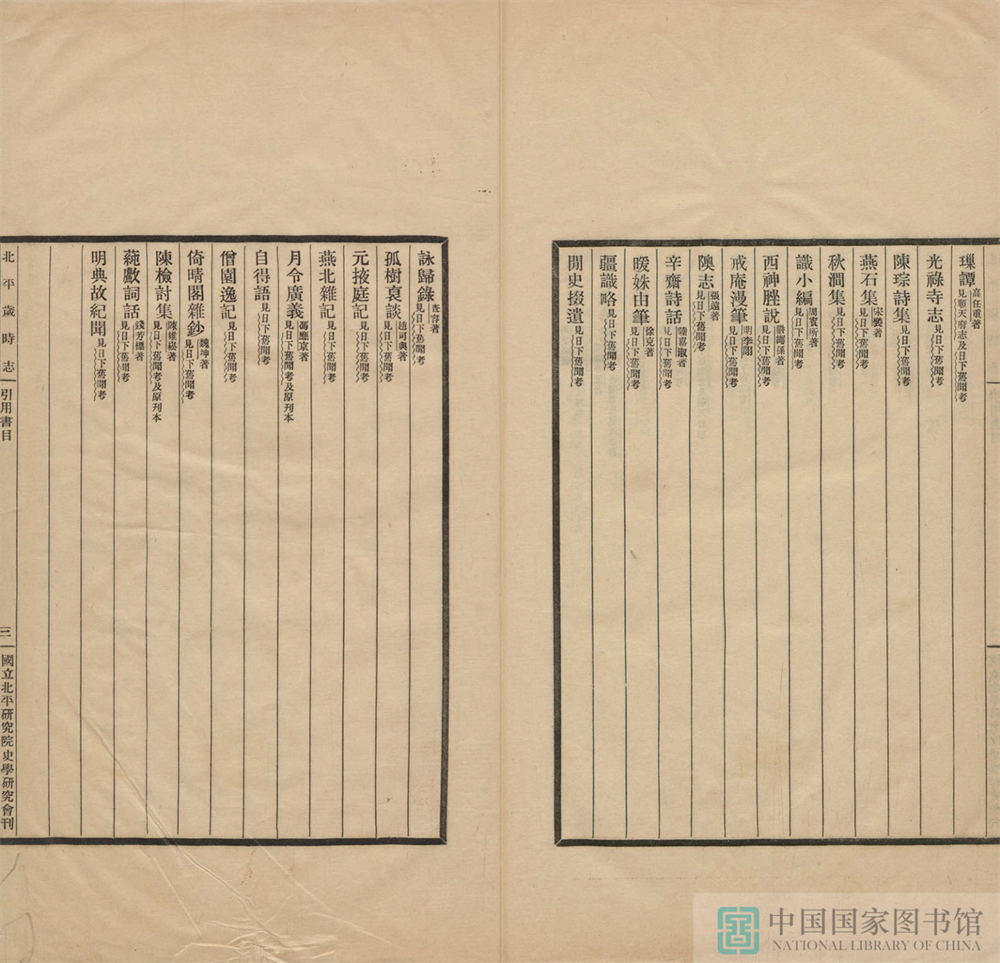 璅譚 高任重著 見順天府志及日下舊聞考
光祿寺志 見日下舊聞考
陳琮詩集 見日下舊聞考
燕石集 宋褧著 見日下舊聞考
秋澗集 見日下舊聞考
識小編 周賓所著 見日下舊聞考
西神脞說 嚴繩孫著 見日下舊聞考
戒庵漫筆 明李詡 見日下舊聞考
隩志 張遠著 見日下舊聞考
辛齋詩話 陸嘉淑著 見日下舊聞考
暖姝由筆 徐充著 見日下舊聞考
疆識略 見日下舊聞考
閒史掇遺 見日下舊聞考
詠歸錄 見日下舊聞考
孤樹裒談 趙可與著 見日下舊聞考
元掖庭記 見日下舊聞考
燕北雜記 見日下舊聞考
月令廣義 馮應京著 見日下舊聞考及原刊本
自得語 見日下舊聞考
僧園逸記 見日下舊聞考
倚晴閣雜鈔 魏坤著 見日下舊聞考
陳檢討集 陳維崧著 見日下舊聞考及原刊本
蒓歠詞話 錢芳標著 見日下舊聞考
明典故紀聞 見日下舊聞考
北平歲時志 引用書目 三 國立北平研究院史學研究會刊
中国国家图书馆
NATIONAL LIBRARY OF CHINA